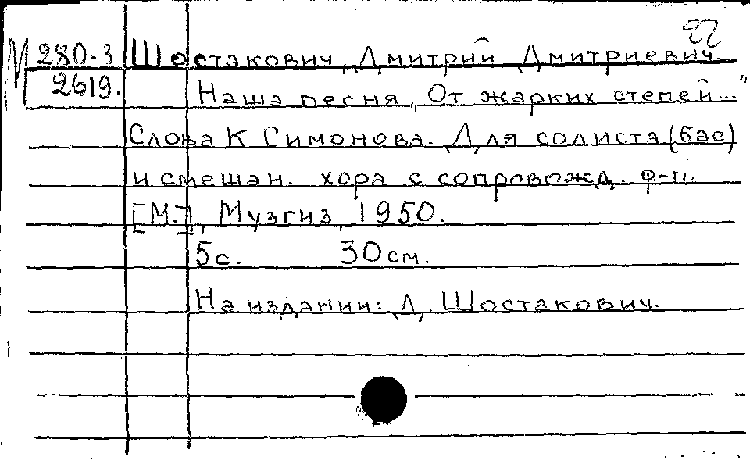 22
М 280-3 Шостакович, Дмитрий Дмитриевич
2619. Наша песня „От жарких степей..."
Слова К Симонова. Для солиста (бас)
и смешан. хора с сопровожд. ф-п.
[М.], Музгиз, 1950.
5с. 30см.
На издании: Д. Шостакович.